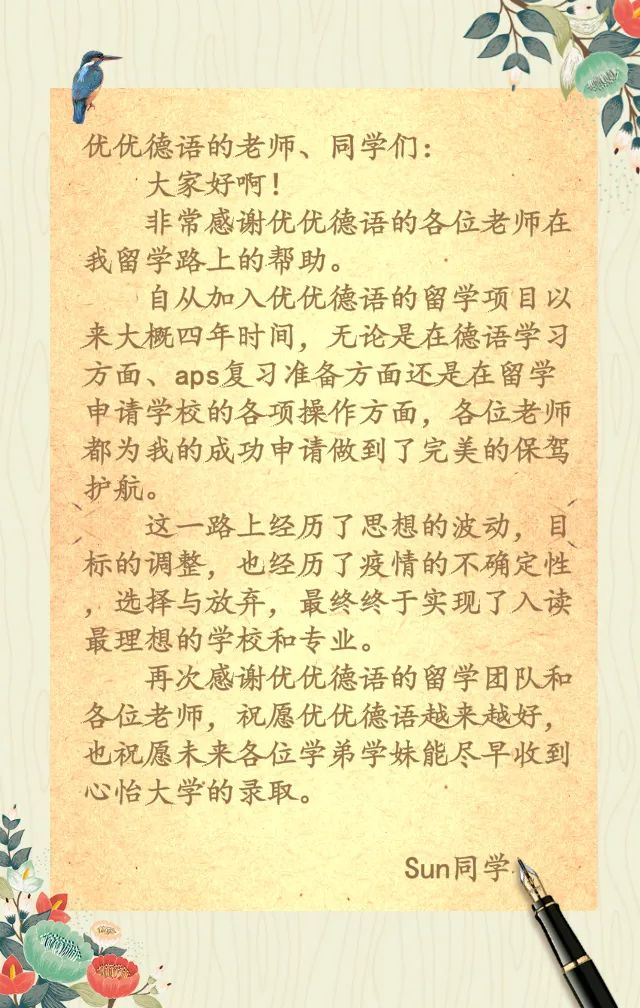 优优德语的老师、同学们：
大家好啊！
非常感谢优优德语的各位老师在
我留学路上的帮助。
自从加入优优德语的留学项目以
来大概四年时间，无论是在德语学习
方面、aps复习准备方面还是在留学
申请学校的各项操作方面，各位老师
都为我的成功申请做到了完美的保驾
护航。
这一路上经历了思想的波动，目
标的调整，也经历了疫情的不确定性
，选择与放弃，最终终于实现了入读
最理想的学校和专业。
再次感谢优优德语的留学团队和
各位老师，祝愿优优德语越来越好，
也祝愿未来各位学弟学妹能尽早收到
心怡大学的录取。
Sun同学